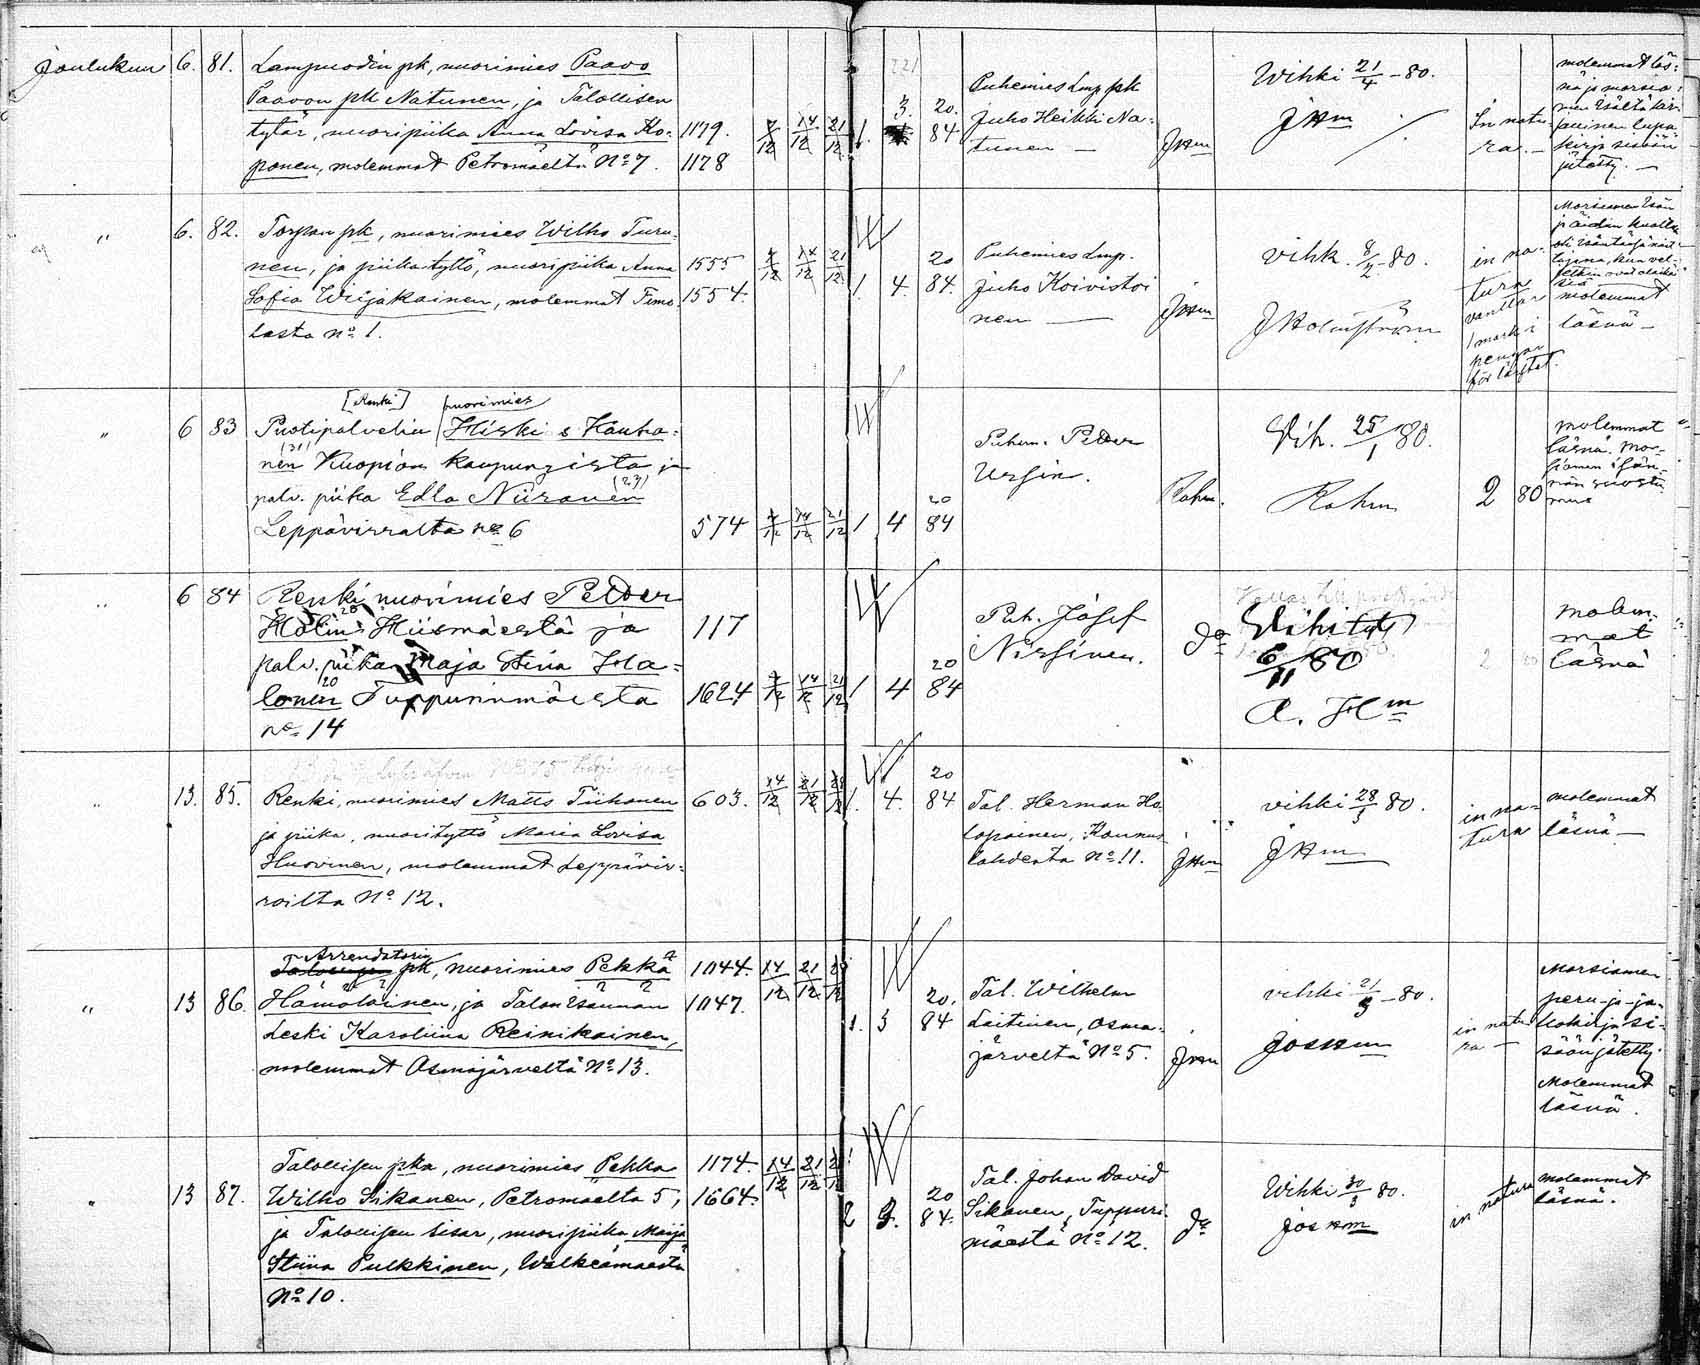 Joulukuu 6. 81. Lampuodin pk, nuorimies Paavo
Paavon pk Natunen, ja Talollisen
tytär, nuoripiika Anna Lovisa Ko-
ponen, molemmat Petromäeltä No 7.
1179.
1178
7/12 14/12 21/12 1. 3. 20. 84
Puhemies Lmp. pk
Juho Heikki Na-
tunen —
JHm
Wihki 21/4 - 80.
JHm
In natu-
ra. —
molemmat läs-
nä ja morsia-
jätetty. —
" 6. 82. Torpan pk, nuorimies Wilho Turu-
nen, ja piikatyttö, nuoripiika Anna
Sofia Wiijakainen, molemmat Timo-
lasta no 1.
1555
1554.
7/12 14/12 21/12 1. 4. 20 84.
Puhemies Lmp.
Juho Koivistoi
nen —
JHm
vihk. 8/2 - 80.
JHolmström
in na-
tura
1 mark
pengar
molemmat
läsnä —
" 6 83 [Renki] nuorimies
Puotipalvelia Hiski s Kauha-
nen Kuopion kaupungista ja
palv. piika Edla Niiranen
Leppävirralta no 6
574 7/12 14/12 21/12 1 4 20 84
Puhem. Petter
Ursin.
Rahm.
Vih. 25/1 80.
Rahm
2 80
molemmat
läsnä. Mor-
siamen isän-
nän suostu
mus
" 6 84 Renki nuorimies Petter
Holm 20 Hiismäestä ja
palv. piika Maja Stina Ha-
lonen 20 Tuppurinmäestä
no 14
117
1624 7/12 14/12 21/12 1 4 20 84
Puh. Josef
Nissinen.
Do
Vihitty
6/11 80
A. Hm
2 80
molem-
mat
läsnä
" 13. 85. Renki, nuorimies Matts Tiihonen
ja piika, nuorityttö Maria Lovisa
Huovinen, molemmat Leppävir-
roilta No 12.
603. 14/12 21/12 28/12 1. 4. 20 84
Tal. Herman Ho-
lopainen, Konnus
lahdesta No 11.
JHm
vihki 28/3 80.
JHm
in na-
tura
molemmat
läsnä —
" 13 86. Arrendatorin
pk, nuorimies Pekka
Hämäläinen, ja Talon Isännän
Leski Karoliina Reinikainen,
molemmat Osmajärveltä No 13.
1044.
1047.
14/12 21/12 28/12 1. 3 20. 84
Tal. Wilhelm
Laitinen, Osma-
järveltä No 5.
JHm
vihki 21/3 - 80.
JosHm
in natu-
ra —
Morsiamen
peru- ja ja-
kokirja si-
sään jätetty.
Molemmat
läsnä.
" 13 87. Talollisen pka, nuorimies Pekka
Wilho Sikanen, Petromäeltä 5,
ja Talollisen sisar, nuoripiika Maija
Stiina Pulkkinen, Walkeamäestä
No 10.
1174.
1664.
14/12 21/12 2 3. 20 84.
Tal. Johan David
Sikanen, Tuppuri-
mäestä No 12.
Do
Wihki 30/3 80.
JosHm
in natura
molemmat
läsnä.